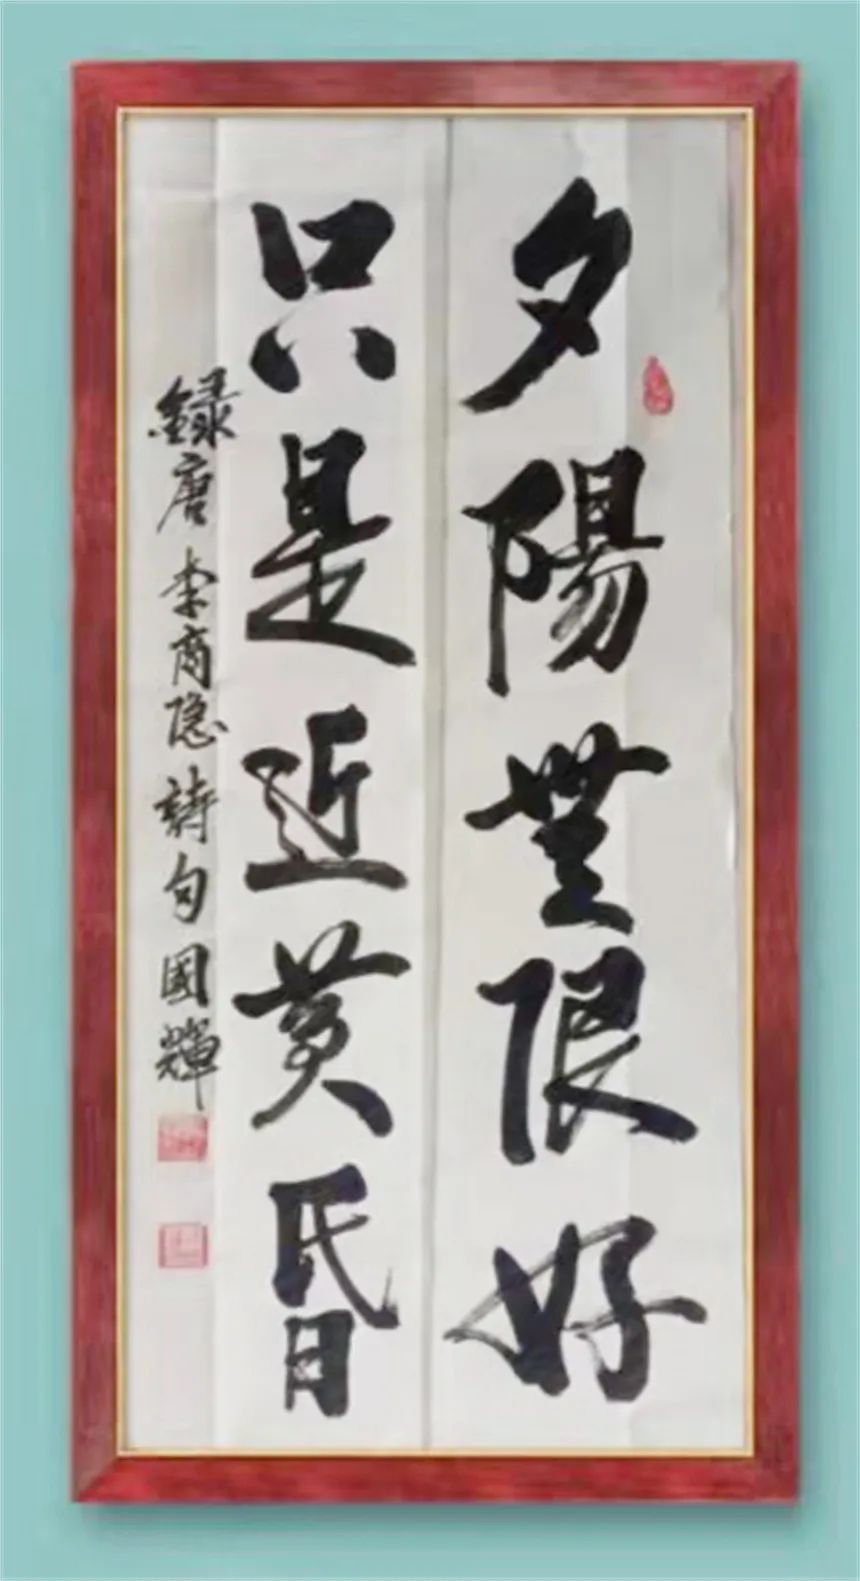 夕陽無限好
只是近黄昏
錄唐李商隐詩句國輝